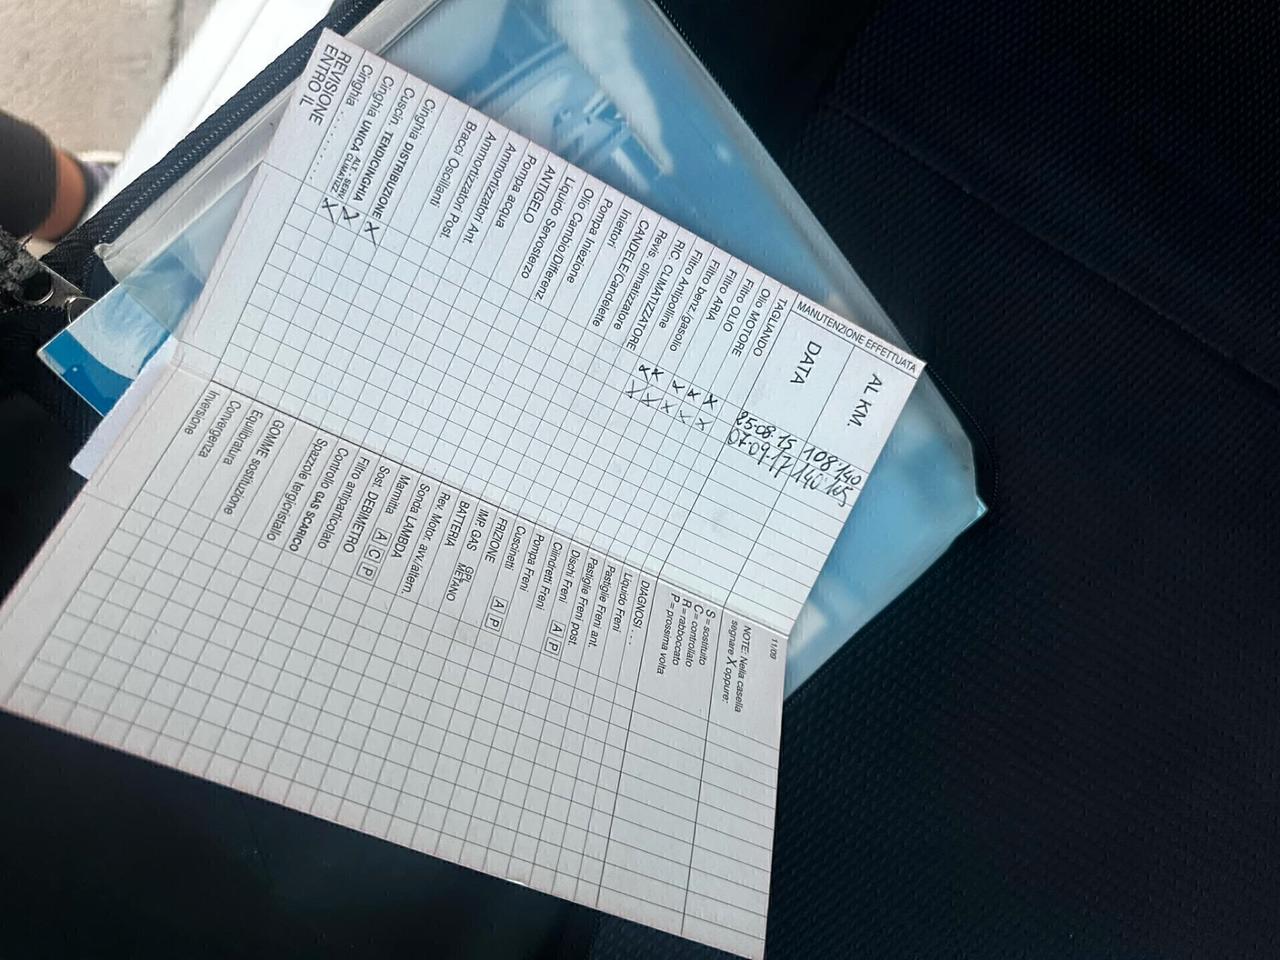 MANUTENZIONE EFFETTUATA
AL KM. 108140 140165
DATA 25.08.15 07.09.17
TAGLIANDO
Olio MOTORE X X
Filtro OLIO X X
Filtro ARIA X X
Filtro benz./gasolio X X
Filtro Antipolline X X
RIC. CLIMATIZZATORE
Revis. climatizzatore
CANDELE/Candelette
Iniettori
Pompa Iniezione
Olio Cambio/Differenz.
Liquido Servosterzo
ANTIGELO
Pompa acqua
Ammortizzatori Ant.
Ammortizzatori Post.
Bracci Oscillanti
Cinghia DISTRIBUZIONE X
Cuscin. TENDICINGHIA X
Cinghia UNICA ALT. SERV. CLIMATIZZ. X
Cinghia . . . . . . . .
REVISIONE
ENTRO IL . . . . . . .
11/09
NOTE: Nella casella
segnare X oppure:
S = sostituito
C = controllato
R = rabboccato
P = prossima volta
DIAGNOSI . . . .
Liquido Freni
Pastiglie Freni ant.
Pastiglie Freni post.
Dischi Freni A P
Cilindretti Freni
Pompa Freni
Cuscinetti A P
FRIZIONE
IMP. GAS GPL METANO
BATTERIA
Rev. Motor. avv./altern.
Sonda LAMBDA
Marmitta A C P
Sost. DEBIMETRO
Filtro antiparticolato
Controllo GAS SCARICO
Spazzole tergicristallo
GOMME sostituzione
Equilibratura
Convergenza
Inversione